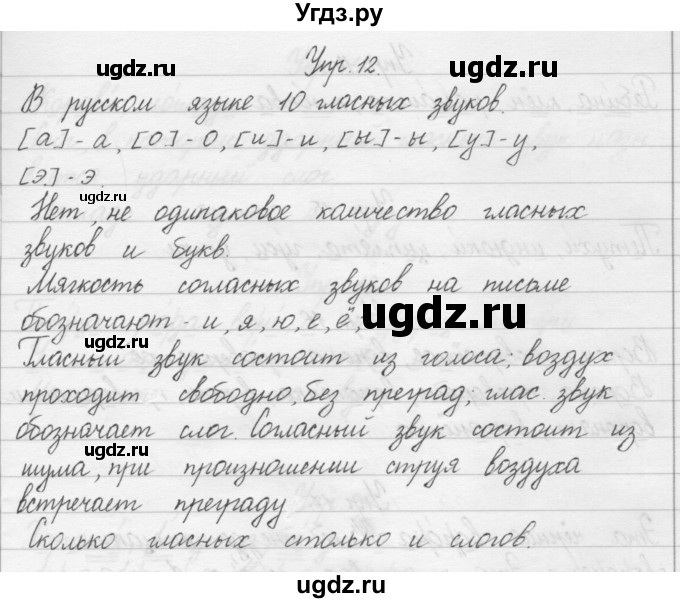 Угдз.ру
Упр. 12.
В русском языке 10 гласных звуков.
[а]-а, [о]-о, [и]-и, [ы]-ы, [у]-у,
[э]-э.
Нет, не одинаковое количество гласных
звуков и букв.
Мягкость согласных звуков на письме
обозначают - и, я, ю, е, ё,
Гласный звук состоит из голоса; воздух
проходит свободно, без преград; глас. звук
обозначает слог. Согласный звук состоит из
шума, при произношении струя воздуха
встречает преграду
Сколько гласных столько и слогов.
ugdz.ru
ugdz.ru
ugdz.ru
ugdz.ru
ugdz.ru
ugdz.ru
ugdz.ru
ugdz.ru
ugdz.ru